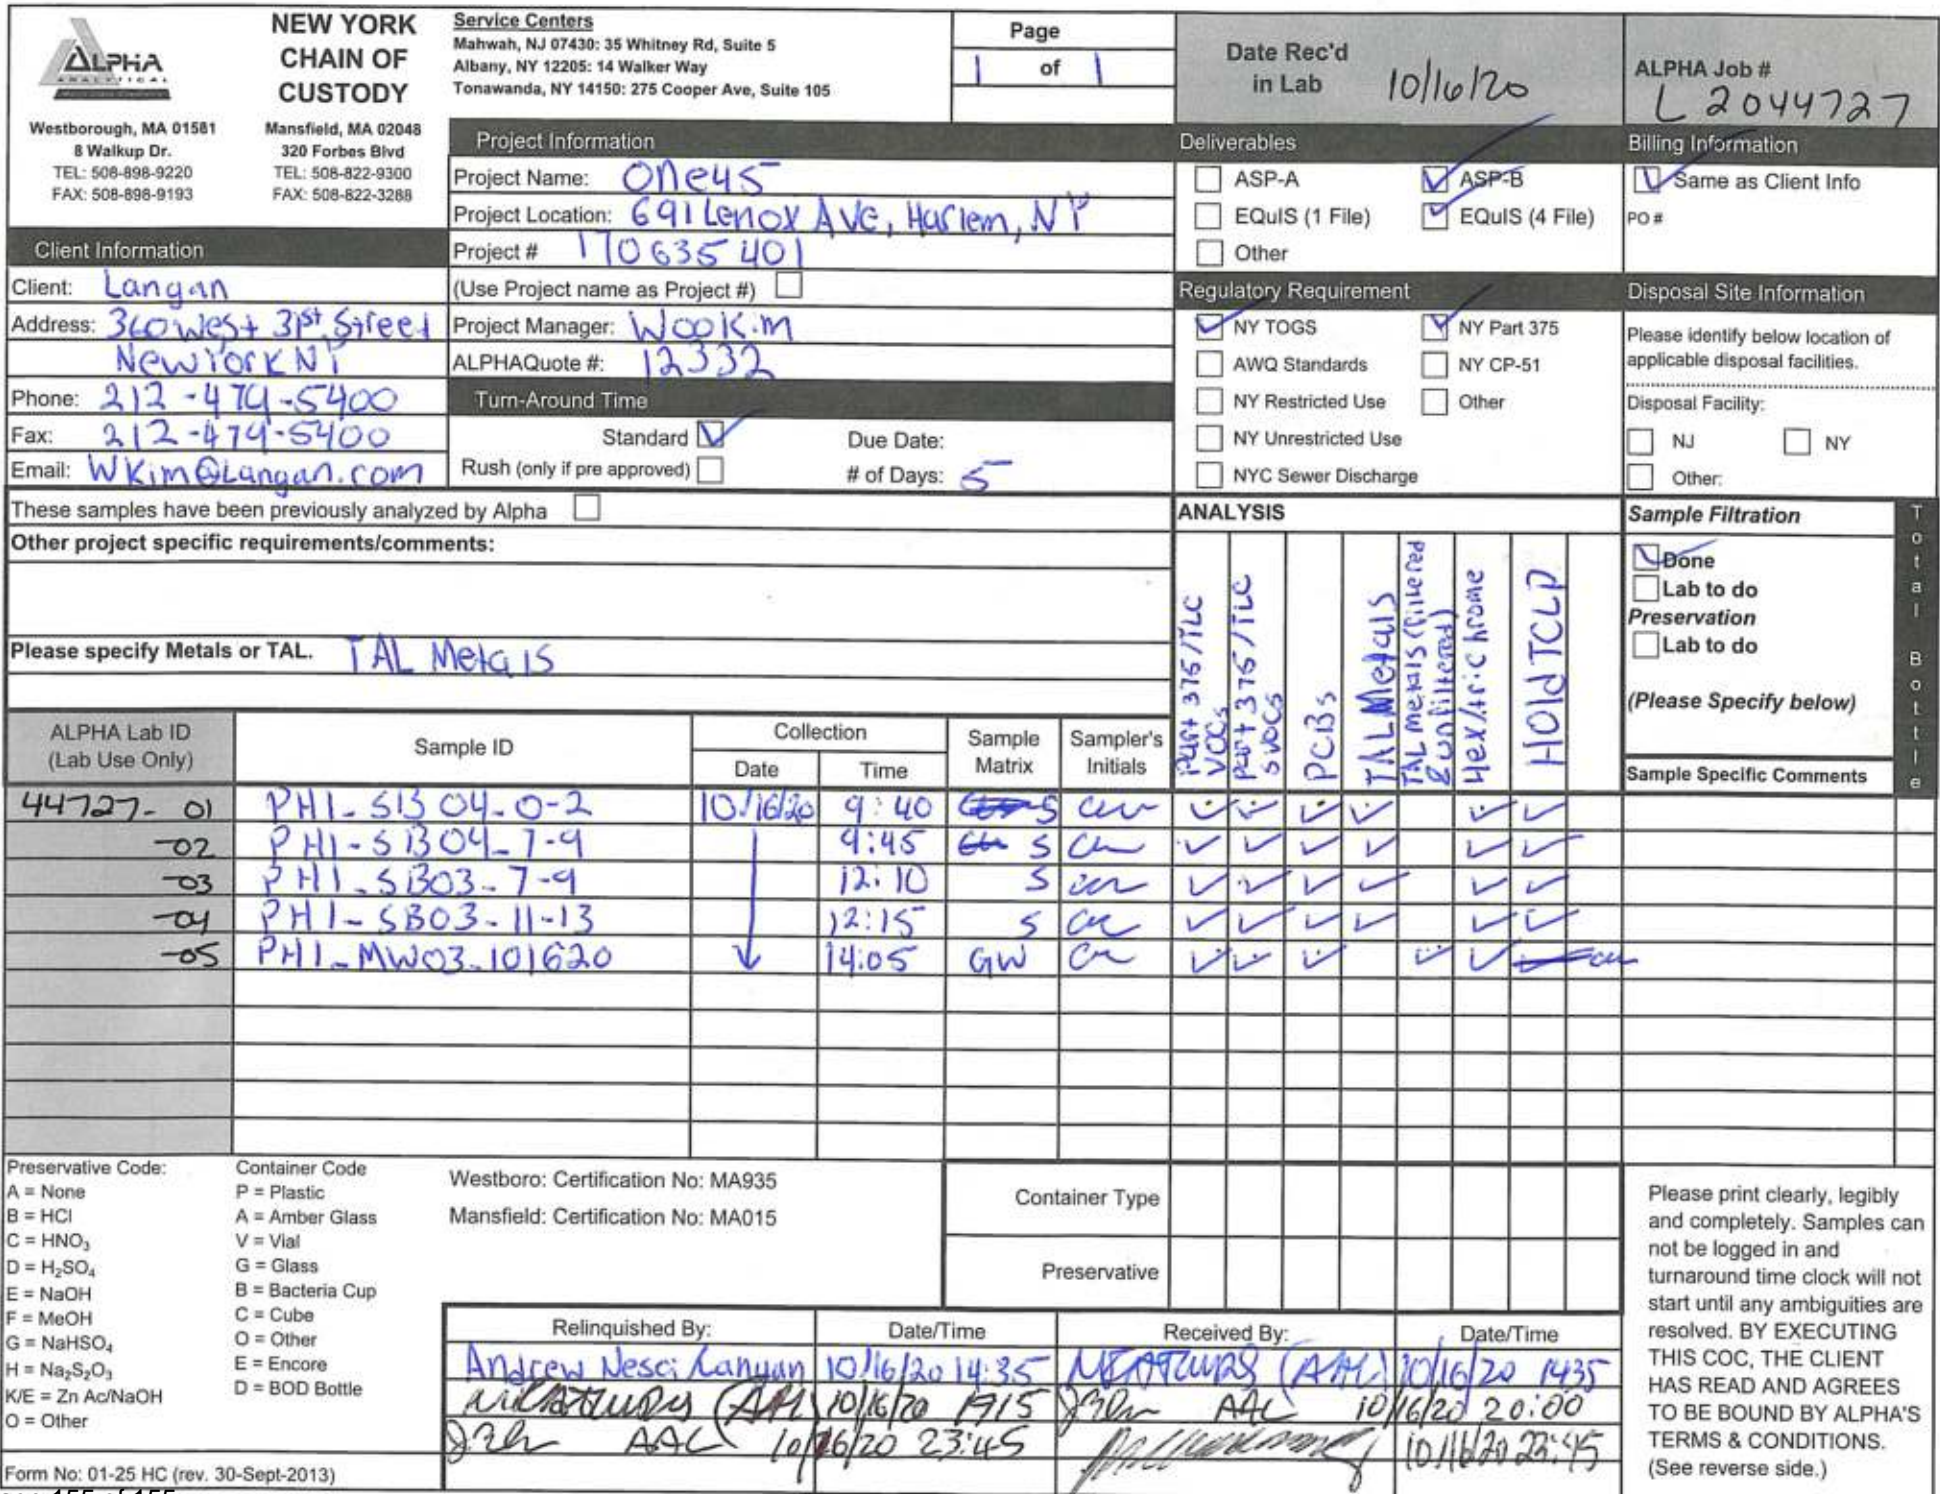 ALPHA
ANALYTICAL
NEW YORK
CHAIN OF
CUSTODY
Westborough, MA 01581
8 Walkup Dr.
TEL: 508-898-9220
FAX: 508-898-9193
Mansfield, MA 02048
320 Forbes Blvd
TEL: 508-822-9300
FAX: 508-822-3288
Service Centers
Mahwah, NJ 07430: 35 Whitney Rd, Suite 5
Albany, NY 12205: 14 Walker Way
Tonawanda, NY 14150: 275 Cooper Ave, Suite 105
Page
1 of 1
Date Rec'd
in Lab 10/16/20
ALPHA Job #
L2044727
Project Information
Project Name: One45
Project Location: 691 Lenox Ave, Harlem, NY
Project # 170635401
(Use Project name as Project #)
Project Manager: Woo Kim
ALPHAQuote #: 12332
Turn-Around Time
Standard Due Date:
Rush (only if pre approved) # of Days: 5
Client Information
Client: Langan
Address: 360 West 31st Street
New York NY
Phone: 212-479-5400
Fax: 212-479-5400
Email: WKim@Langan.com
Deliverables
ASP-A ASP-B
EQuIS (1 File) EQuIS (4 File)
Other
Billing Information
Same as Client Info
PO #
Regulatory Requirement
NY TOGS NY Part 375
AWQ Standards NY CP-51
NY Restricted Use Other
NY Unrestricted Use
NYC Sewer Discharge
Disposal Site Information
Please identify below location of
applicable disposal facilities.
Disposal Facility:
NJ NY
Other:
These samples have been previously analyzed by Alpha
Other project specific requirements/comments:
Please specify Metals or TAL. TAL Metals
ANALYSIS
Part 375/TLC VOCs
Part 375/TLC SVOCs
PCBs
TAL Metals
TAL metals (filtered & unfiltered)
Hex/tric Chrome
Hold TCLP
Sample Filtration
Done
Lab to do
Preservation
Lab to do
(Please Specify below)
Sample Specific Comments
Total Bottle
ALPHA Lab ID
(Lab Use Only)
Sample ID
Collection
Date Time
Sample
Matrix
Sampler's
Initials
44727-01 PHI-SB04-0-2 10/16/20 9:40 S
-02 PHI-SB04-7-9 9:45 S
-03 PHI-SB03-7-9 12:10 S
-04 PHI-SB03-11-13 12:15 S
-05 PHI-MW03-101620 14:05 GW
Preservative Code:
A = None
B = HCl
C = HNO3
D = H2SO4
E = NaOH
F = MeOH
G = NaHSO4
H = Na2S2O3
K/E = Zn Ac/NaOH
O = Other
Container Code
P = Plastic
A = Amber Glass
V = Vial
G = Glass
B = Bacteria Cup
C = Cube
O = Other
E = Encore
D = BOD Bottle
Westboro: Certification No: MA935
Mansfield: Certification No: MA015
Container Type
Preservative
Relinquished By: Date/Time Received By: Date/Time
Andrew Nesci Langan 10/16/20 14:35 (AAL) 10/16/20 1435
(AAL) 10/16/20 1915 AAL 10/16/20 20:00
AAL 10/16/20 23:45 10/16/20 23:45
Please print clearly, legibly
and completely. Samples can
not be logged in and
turnaround time clock will not
start until any ambiguities are
resolved. BY EXECUTING
THIS COC, THE CLIENT
HAS READ AND AGREES
TO BE BOUND BY ALPHA'S
TERMS & CONDITIONS.
(See reverse side.)
Form No: 01-25 HC (rev. 30-Sept-2013)